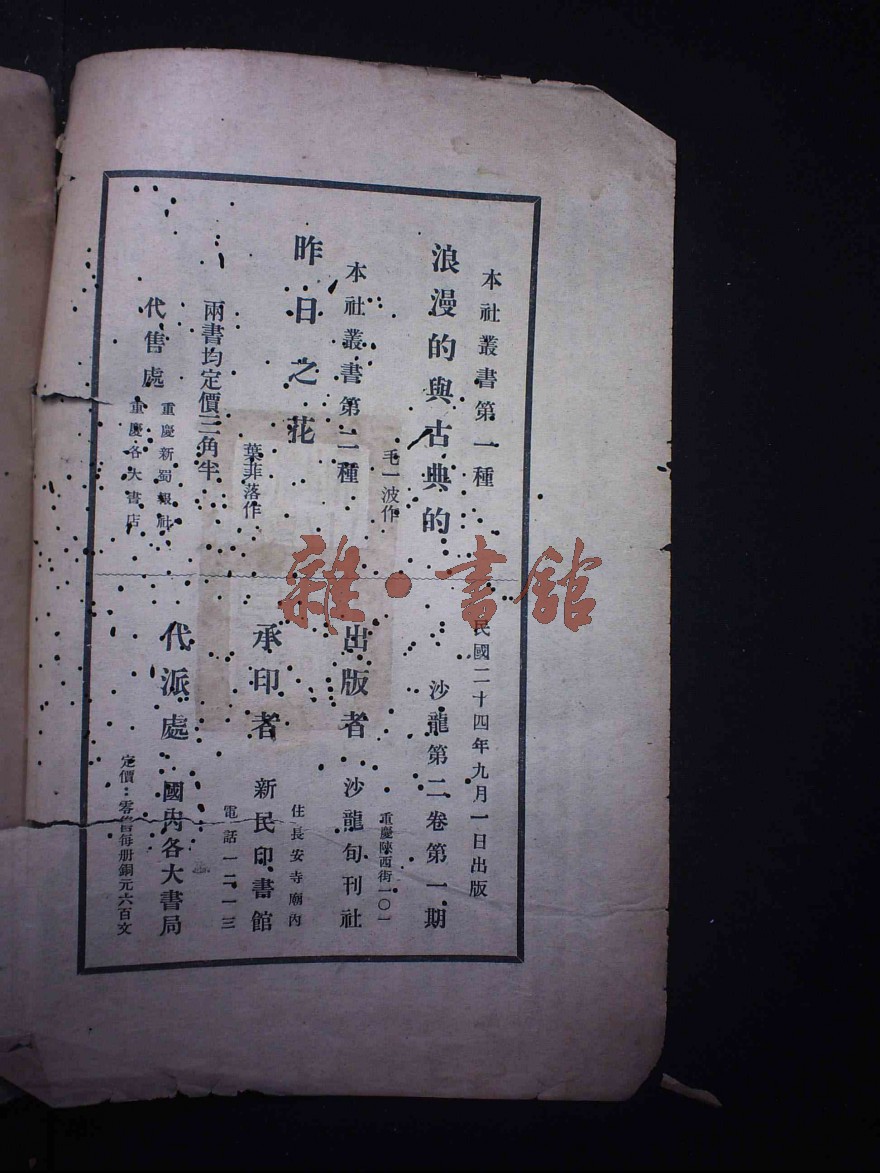 本社叢書第一種
浪漫的與古典的
毛一波作
本社叢書第二種
昨日之花
葉菲落作
兩書均定價三角半
代售處
重慶新蜀報社
重慶各大書店
民國二十四年九月一日出版
沙龍第二卷第一期
出版者 沙龍旬刊社
重慶陝西街一〇一
承印者 新民印書館
住長安寺廟內
電話一二一三
代派處 國內各大書局
定價：零售每册銅元六百文
雜·書館